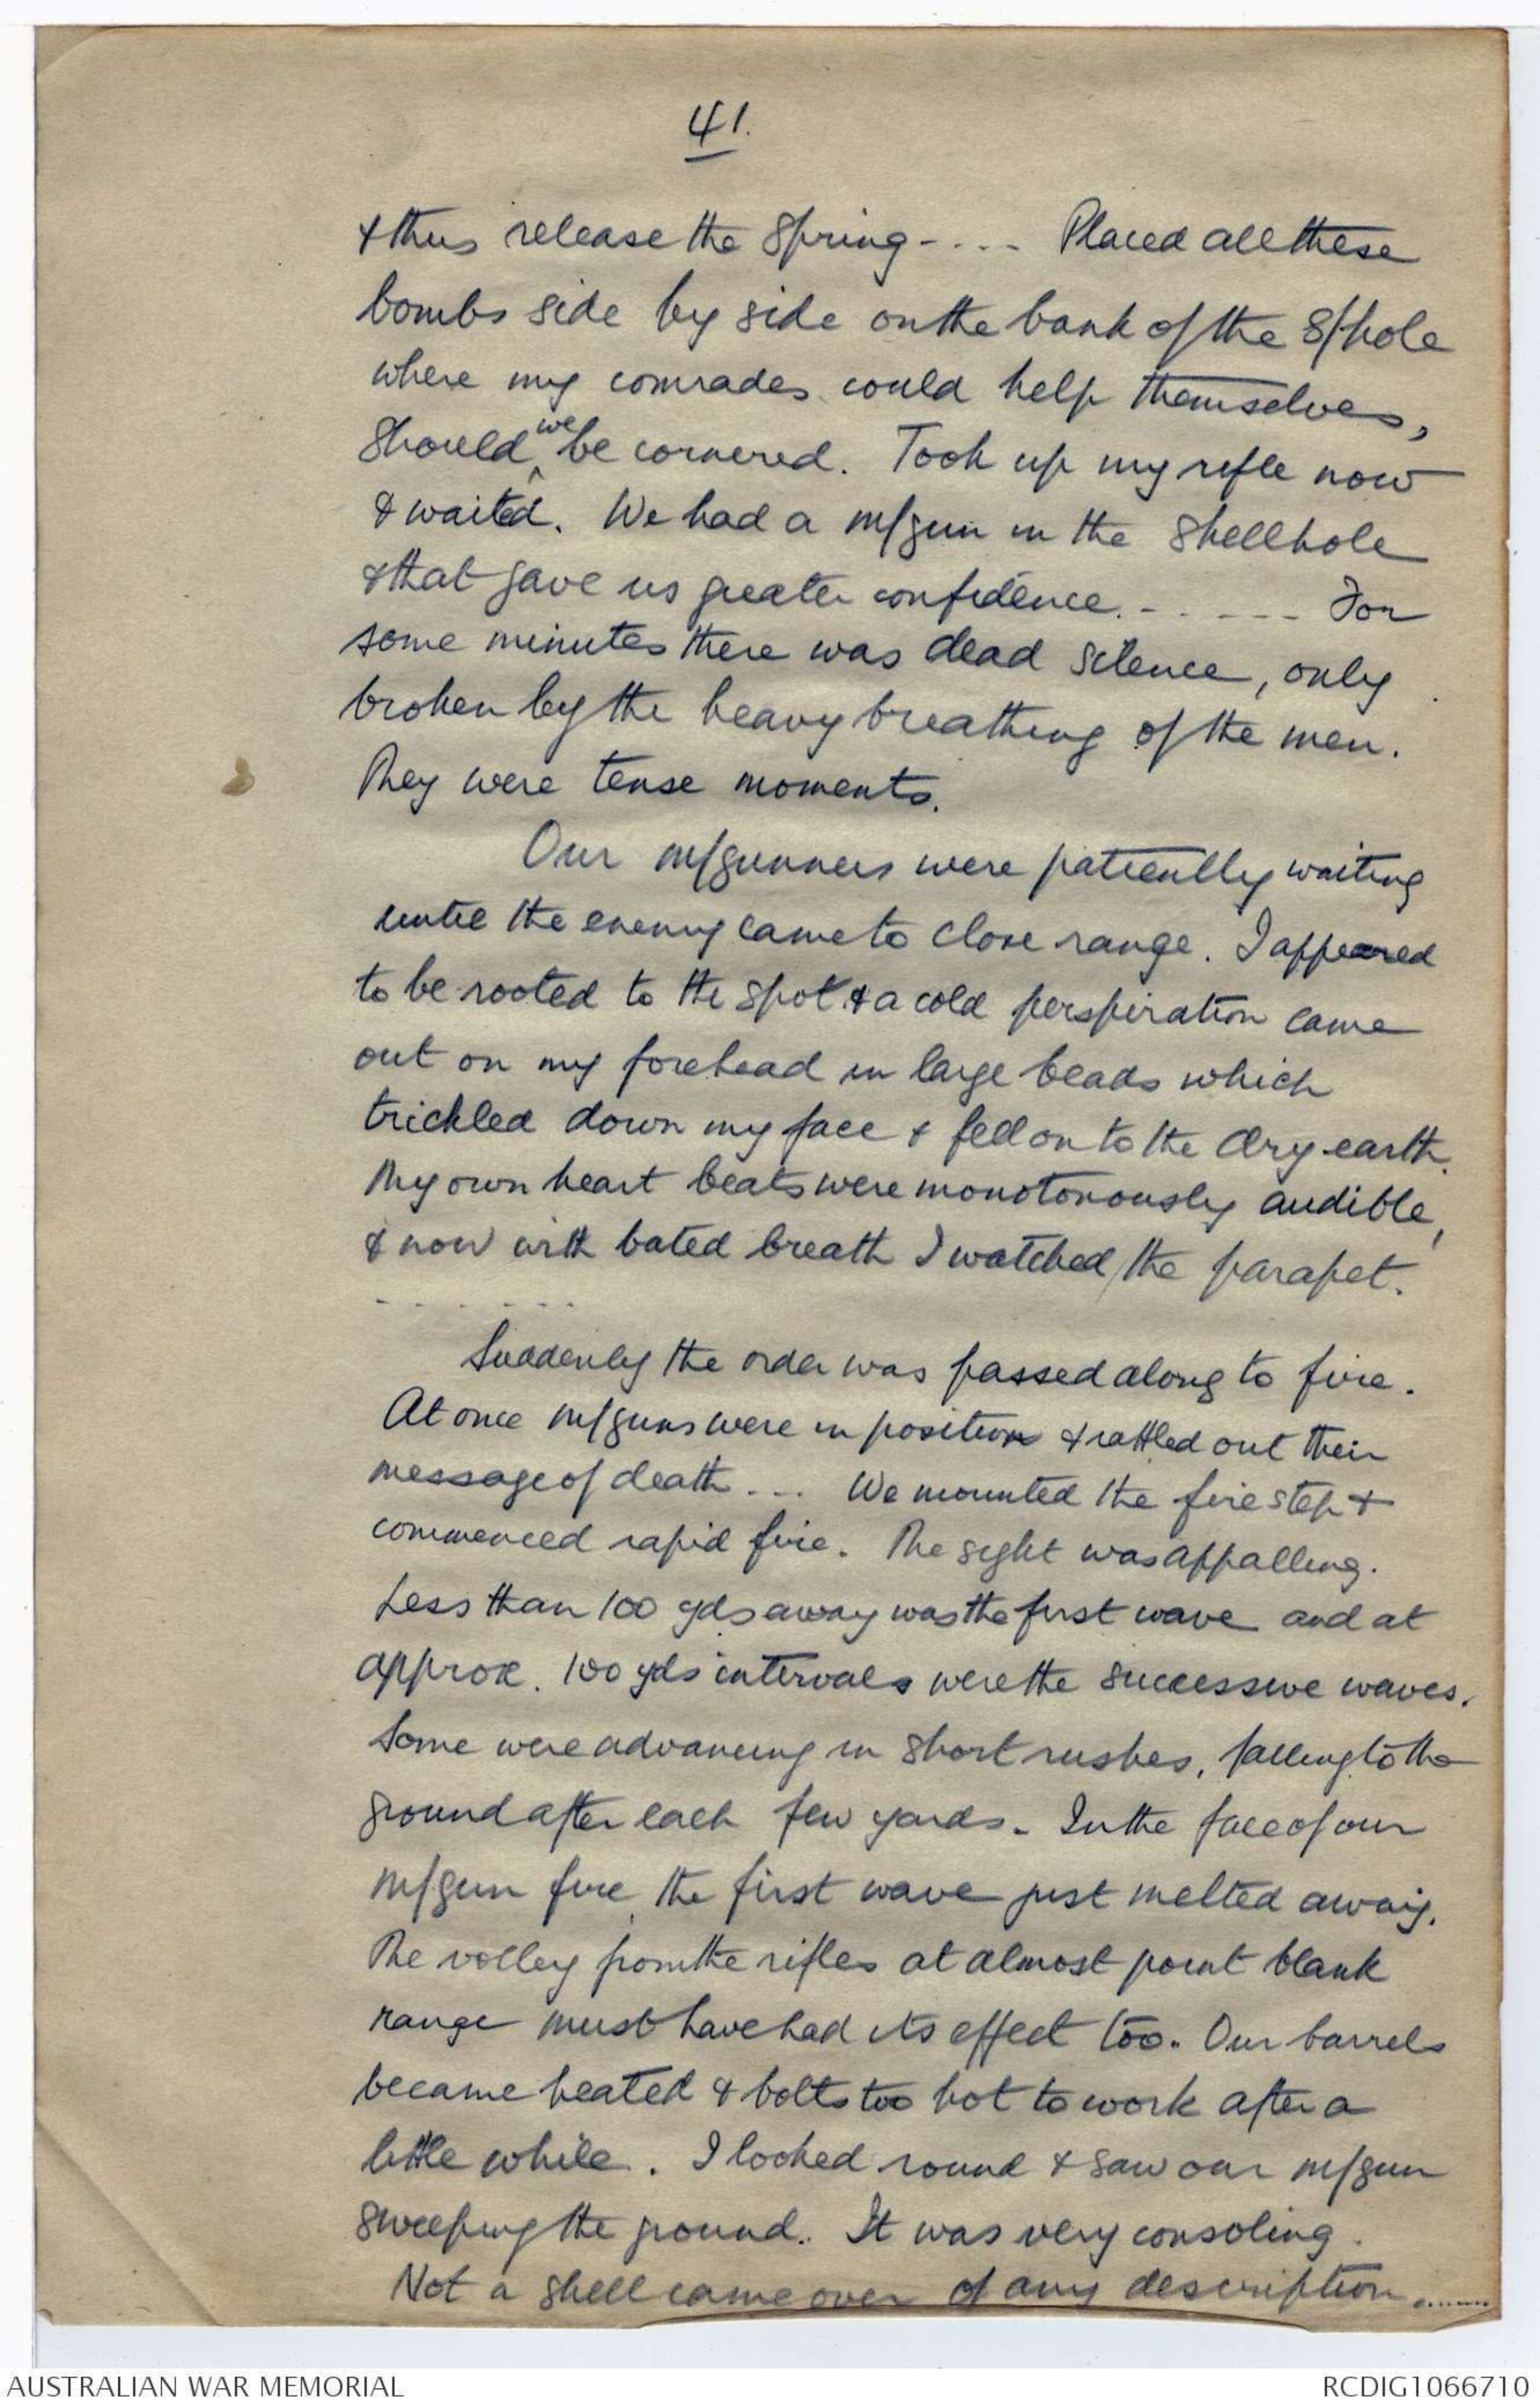 41.
& thus release the spring - . . . Placed all these
bombs side by side on the bank of the s/hole
where my comrades could help themselves,
should we be cornered. Took up my rifle now
& waited. We had a m/gun in the shellhole
& that gave us greater confidence. - . - - - - For
some minutes there was dead silence, only
broken by the heavy breathing of the men.
They were tense moments.
Our m/gunners were patiently waiting
until the enemy came to close range. I appeared
to be rooted to the spot & a cold perspiration came
out on my forehead in large beads which
trickled down my face & fell on to the dry earth.
My own heart beats were monotonously audible,
& now with bated breath I watched the parapet.
- - - - - - -
Suddenly the order was passed along to fire.
At once m/guns were in position & rattled out their
message of death . - . We mounted the fire step &
commenced rapid fire. The sight was appalling.
Less than 100 yds away was the first wave and at
approx. 100 yds intervals were the successive waves.
Some were advancing in short rushes, falling to the
ground after each few yards. In the face of our
m/gun fire the first wave just melted away.
The volley from the rifles at almost point blank
range must have had its effect too. Our barrels
became heated & bolts too hot to work after a
little while. I looked round & saw our m/gun
sweeping the ground. It was very consoling.
Not a shell came over of any description .......
AUSTRALIAN WAR MEMORIAL
RCDIG1066710